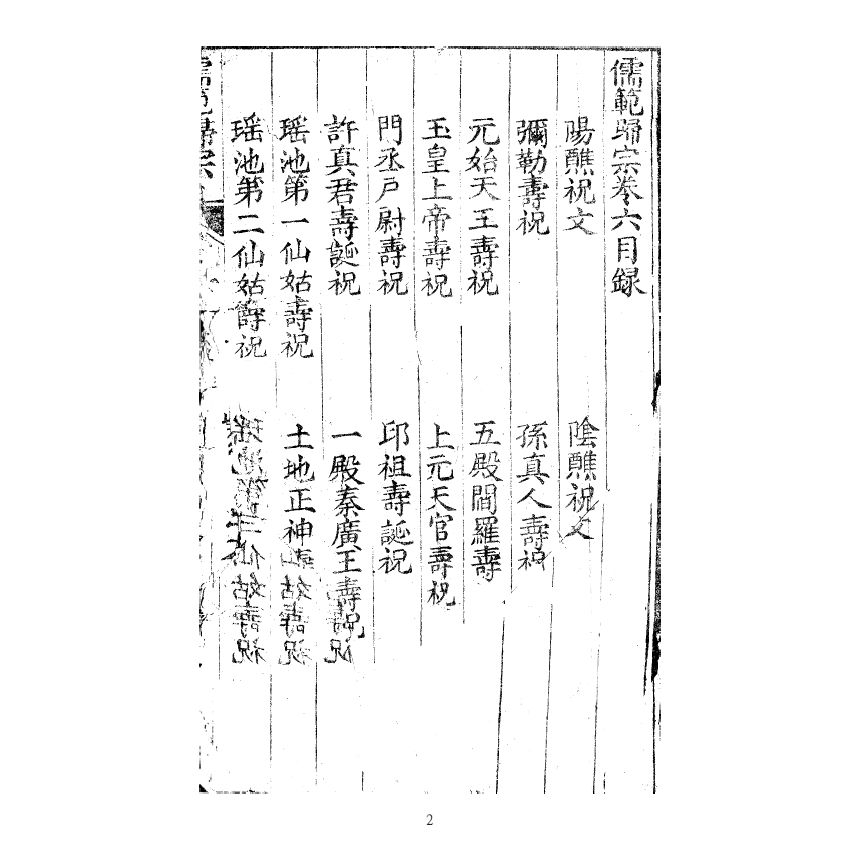 儒範歸宗卷六目録
陽醮祝文　陰醮祝文
彌勒壽祝　孫真人壽祝
元始天王壽祝　五殿閻羅壽
玉皇上帝壽祝　上元天官壽祝
門丞戶尉壽祝　邱祖壽誕祝
許真君壽誕祝　一殿秦廣王壽祝
瑶池第一仙姑壽祝　土地正神
瑶池第二仙姑壽祝　仙姑壽祝
儒範歸宗
2